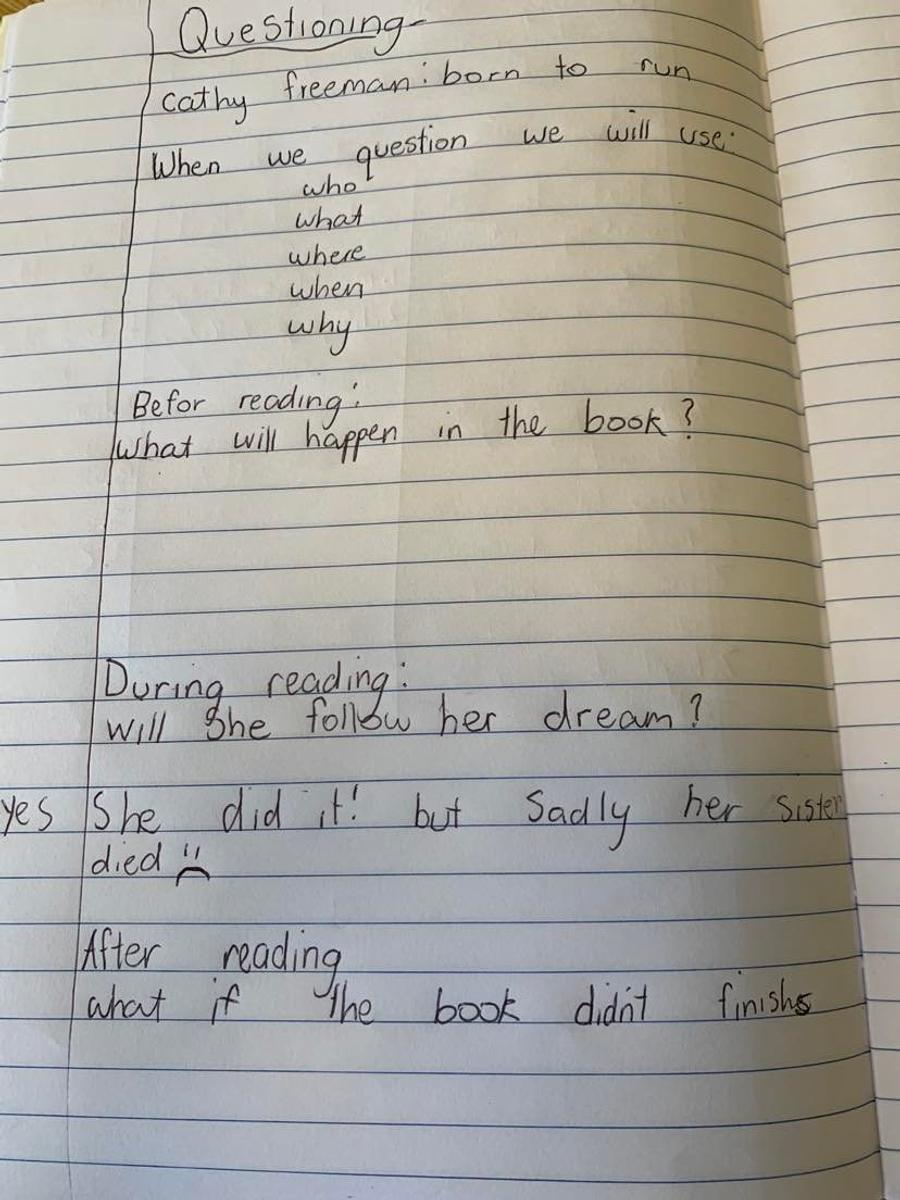 Questioning-
Cathy freeman: born to run
When we question we will use:
who
what
where
when
why
Befor reading:
What will happen in the book?
During reading:
Will She follow her dream?
yes She did it! but Sadly her sister
died
After reading
what if the book didn't finish